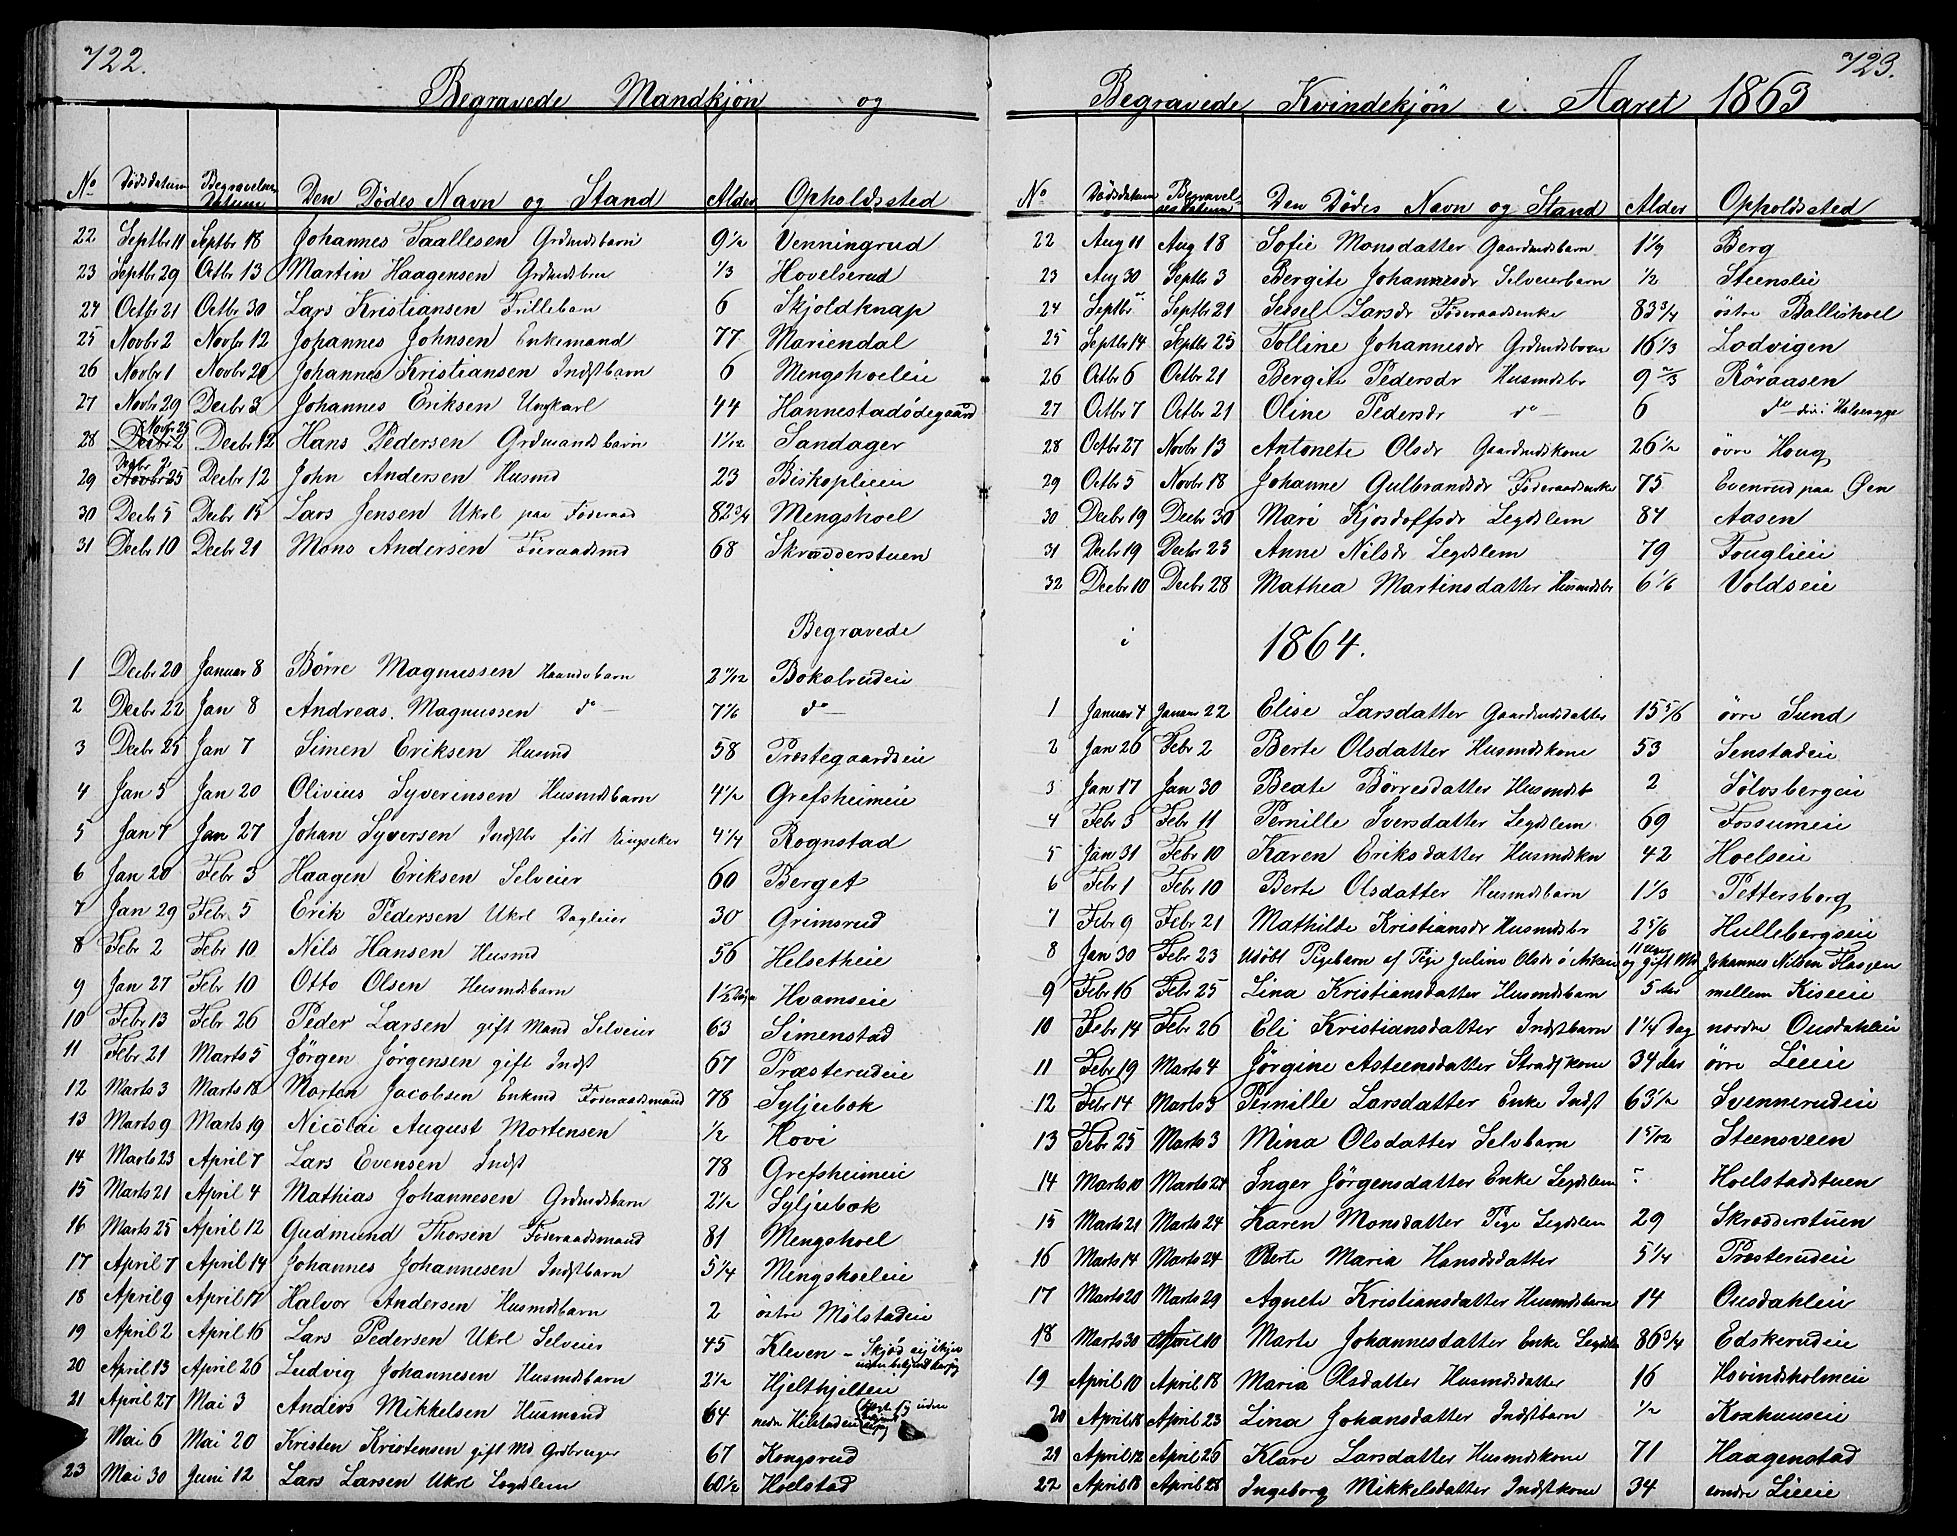 722.
Begravede Mandkjøn og
No Dødsdatum Begravelses Datum Den Dødes Navn og Stand Alder Opholdssted
22 Septbr 11 Septbr 18 Johannes Taallesen Grdmdsbarn 9 1/2 Venningrud
23 Septbr 29 Octbr 13 Martin Haagensen Grdmdsbrn 1/3 Hovelserud
24 Octbr 21 Octbr 30 Lars Kristiansen Frillebarn 6 Skjoldknap
25 Novbr 2 Novbr 12 Johannes Johnsen Enkemand 77 Mariendal
26 Novbr 1 Novbr 20 Johannes Kristiansen Indstbarn 6 Mengshoeleie
27 Novbr 29 Decbr 3 Johannes Eriksen Ungkarl 44 Hannestadødegaard
28 Novbr 25 Decbr 12 Hans Pedersen Grdmandsbarn 1 1/12 Sandager
29 Decbr 12 John Andersen Husmd 23 Biskoplien
30 Decbr 5 Decbr 15 Lars Jensen Ukrl paa Føderaad 82 3/4 Mengshoel
31 Decbr 10 Decbr 21 Mons Andersen Føderaadsmd 68 Skrædderstuen
Begravede
1 Decbr 20 Januar 8 Børre Magnussen Haandvbarn 2 11/12 Bokalrudeie
2 Decbr 22 Jan 8 Andreas Magnussen do 7 1/6 do
3 Decbr 25 Jan 7 Simen Eriksen Husmd 58 Prestegaardseie
4 Jan 5 Jan 20 Olivius Syverinsen Husmdsbarn 4 1/2 Grefsheimeie
5 Jan 7 Jan 27 Johan Syversen Indstbr født Ringsaker 4 1/4 Rognstad
6 Jan 20 Febr 3 Haagen Eriksen Selveier 60 Berget
7 Jan 29 Febr 5 Erik Pedersen Ukrl Dagleier 30 Grimsrud
8 Febr 2 Febr 10 Nils Hansen Husmd 56 Helsetheie
9 Jan 27 Febr 10 Otto Olsen Husmdsbarn 1 1/2 Dage Hvamseie
10 Febr 13 Febr 26 Peder Larsen gift Mand Selveier 63 Simenstad
11 Febr 21 Marts 5 Jørgen Jørgensen gift Indst 67 Præsterudeie
12 Marts 3 Marts 18 Morten Jacobsen Enkmd Føderaadsmand 78 Syljubok
13 Marts 9 Marts 19 Nicolai August Mortensen 1/2 Hovi
14 Marts 23 April 7 Lars Evensen Indst 78 Grefsheimeie
15 Marts 21 April 4 Mathias Johannesen Grdmdsbarn 2 1/2 Syljubok
16 Marts 25 April 12 Gudmund Thorsen Føderaadsmand 81 Mengshoel
17 April 7 April 14 Johannes Johannesen Indstbarn 5 1/4 Mengshoeleie
18 April 9 April 17 Halvor Andersen Husmdsbarn 2 østre Mölstadeie
19 April 2 April 16 Lars Pedersen Ukrl Selveier 45 Kleven
20 April 13 April 26 Ludvig Johannesen Husmdsbarn 2 1/2 Hjelthjilteie
21 April 27 Mai 3 Anders Mikkelsen Husmand 64 nedre Hilstadeie
Mai 6 Mai 20 Kristen Kristensen gift Md Grdbruger 67 Kongsrud
23 Mai 30 Juni 12 Lars Larsen Ukrl Lægdslem 60 1/2 Hoelstad
723.
Begravede Kvindekjøn i Aaret 1863
No Dødsdatum Begravelsesdatum Den Dødes Navn og Stand Alder Oppholdssted
22 Aug 11 Aug 18 Sofie Monsdatter Gaardmdsbarn 1 1/9 Berg
23 Aug 30 Septbr 3 Bergite Johannesdr Selveierbarn 1/2 Steenslie
24 Septbr Septbr 21 Sessel Larsdr Føderaadsenke 83 3/4 østre Ballishoel
25 Septbr 14 Septbr 25 Tolline Johannesdr Grdmdsbarn 16 1/3 Lodvigen
26 Octbr 6 Octbr 21 Bergite Pedersdr Husmdsbr 9 2/3 Röraasen
27 Octbr 7 Octbr 21 Oline Pedersdr do 6 do
28 Octbr 27 Novbr 13 Antonete Olsdr Gaardmdskone 26 1/2 øvre Houg
29 Octbr 5 Novbr 18 Johanne Gulbrandsdr Føderaadsenke 75 Evenrud paa Øen
30 Decbr 19 Decbr 30 Mari Kjosdoffsdr Legdslem 84 Aasen
31 Decbr 19 Decbr 23 Anne Nilsdr Legdslem 79 Fouglieie
32 Decbr 10 Decbr 28 Mathea Martinsdatter Husmdsbr 6 1/6 Voldseie
i 1864.
1 Januar 4 Januar 22 Elise Larsdatter Gaardmdsdatter 15 5/6 øvre Sund
2 Jan 26 Febr 2 Berte Olsdatter Husmdskone 53 Senstadeie
3 Jan 17 Jan 30 Beate Børresdatter Husmdsb 2 Sölvsbergeie
4 Febr 3 Febr 11 Pernille Iversdatter Legdslem 69 Fossumeie
5 Jan 31 Febr 10 Karen Eriksdatter Husmdskn 42 Hoelseie
6 Febr 1 Febr 10 Berte Olsdatter Husmdsbarn 1 1/3 Pettersborg
7 Febr 9 Febr 21 Mathilde Kristiansdr Husmdsbr 2 5/6 Hullebergseie
8 Jan 30 Febr 23 Udöbt Pigebarn af Pige Juline Olsdr og gift Md Johannes Nilsen Flasgen
9 Febr 16 Febr 25 Lina Kristiansdatter Husmdsbarn 5 Aar mellem Kiseeie
10 Febr 14 Febr 26 Eli Kristiansdatter Indstbarn 1 1/4 Dag nordre Ousdahleie
11 Febr 19 Marts 4 Jørgine Asteensdatter Strandskone 34 Aar øvre Lieeie
12 Febr 14 Marts 3 Pernille Larsdatter Enke Indst 63 1/2 Svennerudeie
13 Febr 25 Marts 3 Mina Olsdatter Selvbarn 1 5/12 Steensveen
14 Marts 10 Marts 24 Inger Jörgensdatter Enke Legdslem Hoelstadstuen
15 Marts 21 Marts 24 Karen Monsdatter Pige Legdslem 29 Skrædderstuen
16 Marts 14 Marts 24 Berte Maria Hansdsdatter 5 1/4 Præsterudeie
17 Marts 20 Marts 29 Agnete Kristiansdatter Husmdsbarn 14 Ousdahleie
18 Marts 30 April 10 Marte Johannesdatter Enke Legdslm 86 3/4 Edskerudeie
19 April 10 April 18 Maria Olsdatter Husmdsdatter 16 Hovindsholmeie
20 April 18 April 23 Lina Johansdatter Indstbarn 1/2 Kraxhuuseie
21 April 12 April 26 Klare Larsdatter Husmdskone 71 Haagenstad
22 April 18 April 28 Ingeborg Mikkelsdatter Indstkone 34 søndre Lieeie